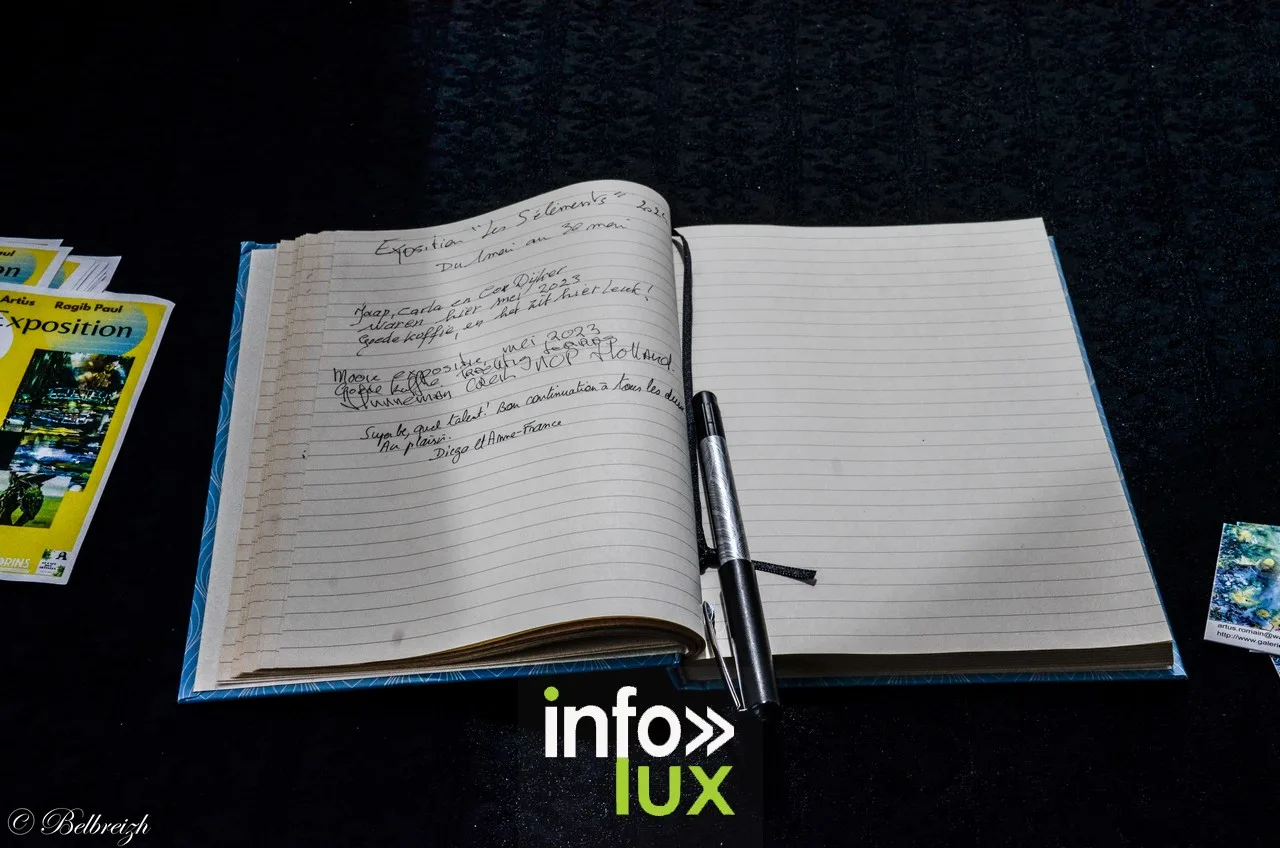 Exposition "Les 5 éléments" 202
Du 1 mai au 30 mai
Jaap, Carla en Cex Dijker
waren hier mei 2023
Goede koffie, en het zit hier leuk!
Mooie expositie, mei 2023
koffie
NOP Holland.
Superbe, quel talent! Bon continuation à tous les deux
Au plaisir.
Diego et Anne-France
aul
on
Artus Ragib Paul
Exposition
ORINS
artus.romain@wa
http://www.galerie
info»
lux
© Belbreizh